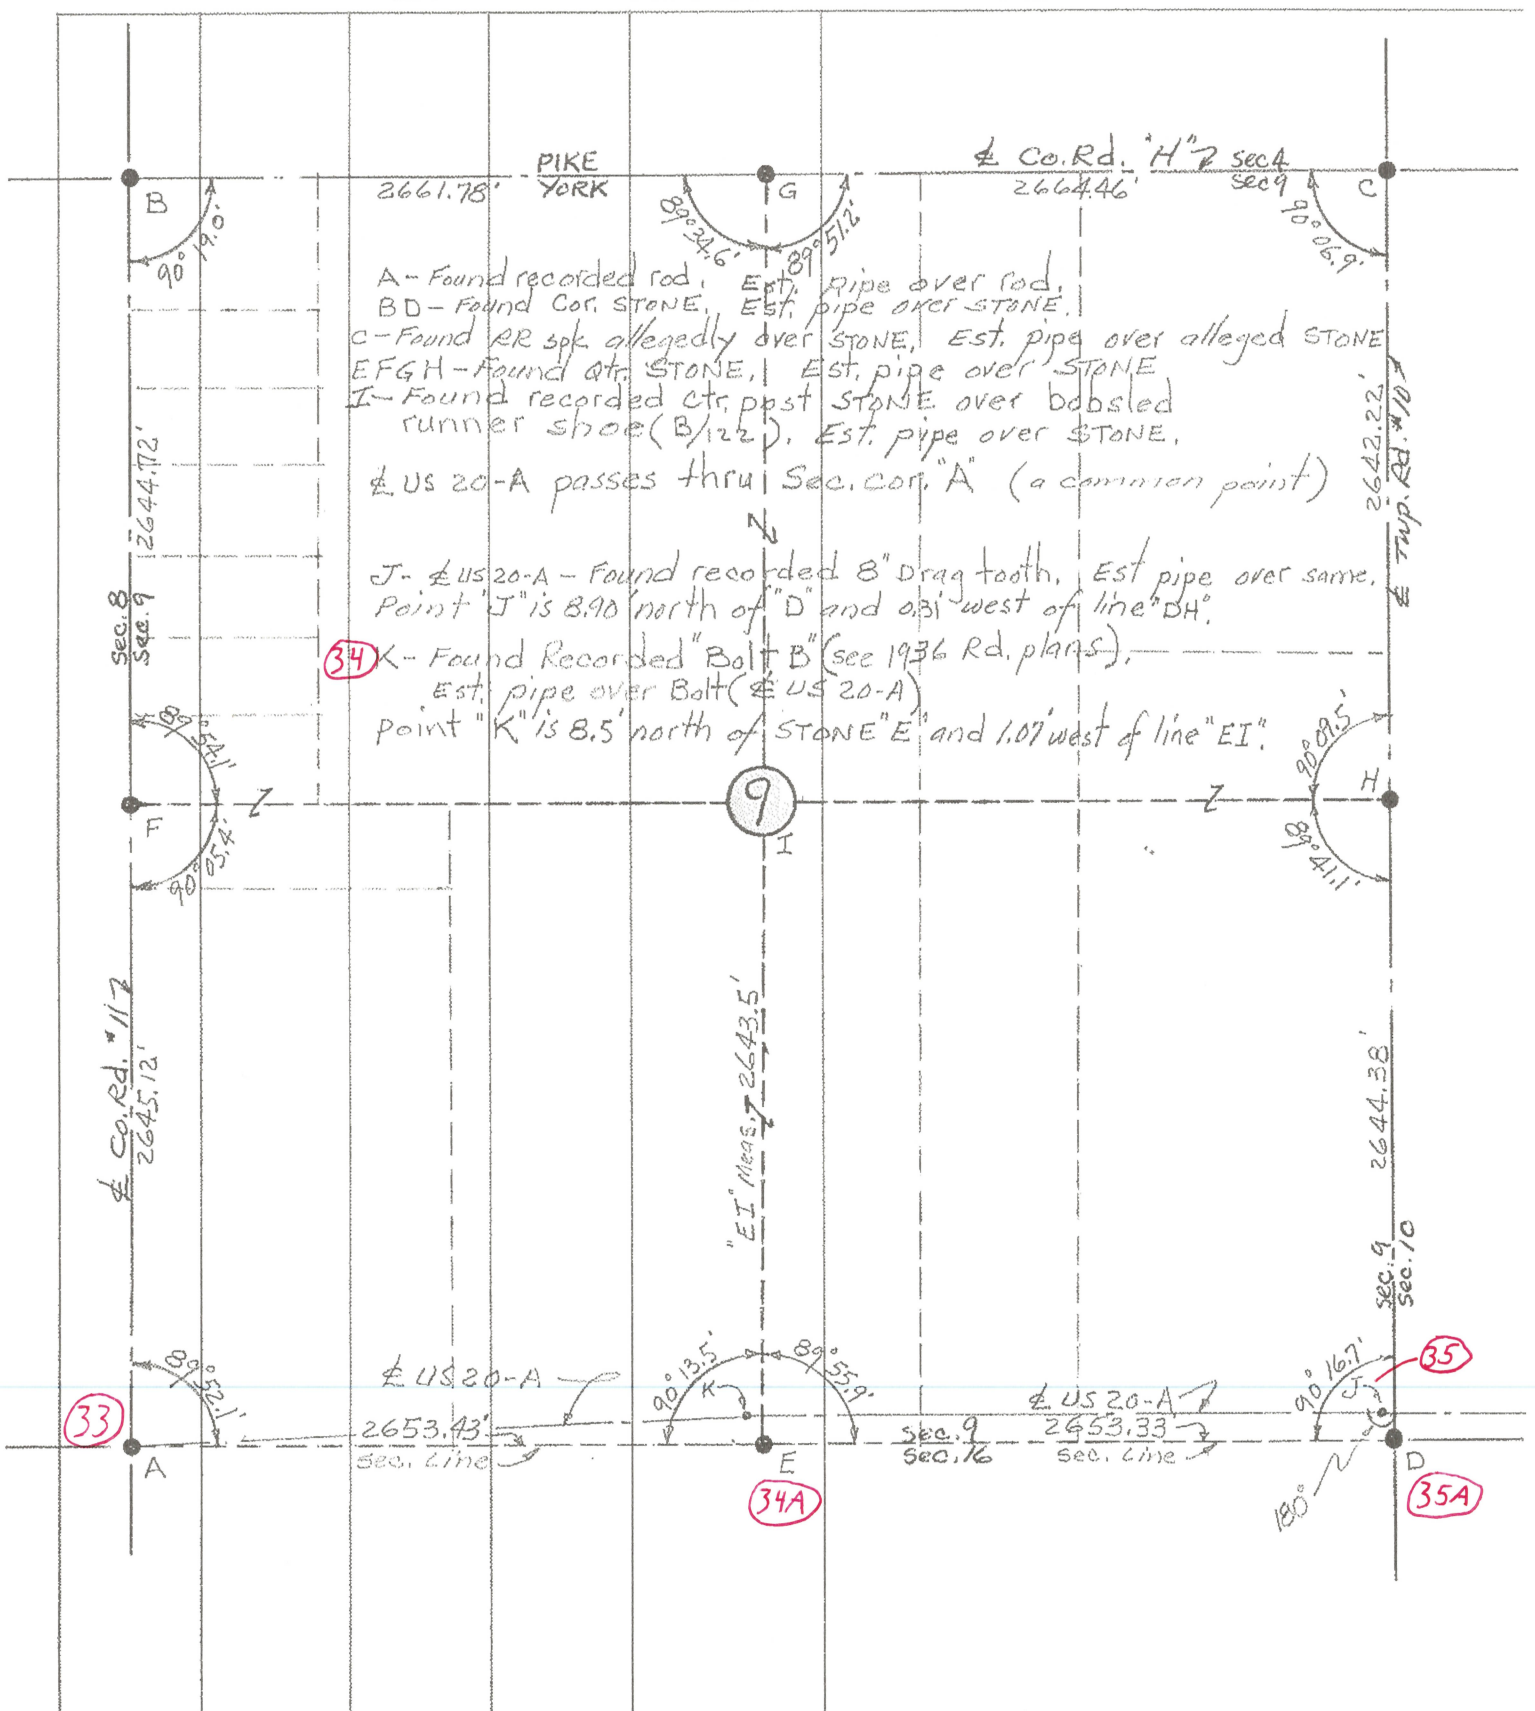 ℄ Co. Rd. "H"
sec 4
sec 9
PIKE
YORK
2661.78'
2664.46'
B
G
C
90° 19.0'
89° 34.6'
89° 51.2'
90° 06.9'
A - Found recorded rod. Est. pipe over rod.
BD - Found Cor. STONE. Est. pipe over STONE.
C - Found RR spk allegedly over STONE. Est. pipe over alleged STONE
EFGH - Found Qtr. STONE. Est. pipe over STONE
I - Found recorded ctr. post STONE over bobsled
runner shoe (B/122). Est. pipe over STONE.
℄ US 20-A passes thru Sec. cor. "A" (a common point)
J - ℄ US 20-A - Found recorded 8" Drag tooth. Est pipe over same.
Point "J" is 8.90' north of "D" and 0.31' west of line "DH".
34
K - Found Recorded "Bolt B" (see 1936 Rd. plans).
Est. pipe over Bolt (℄ US 20-A)
point "K" is 8.5' north of STONE "E" and 1.07' west of line "EI".
2644.72'
Sec. 8
Sec. 9
2642.22'
℄ Twp. Rd. #10
89° 54.1'
90° 05.4'
F
9
I
H
90° 09.5'
89° 41.1'
℄ Co. Rd. #11
2645.12'
"EI" Meas. 2643.5'
2644.38'
sec. 9
sec. 10
33
89° 52.1'
℄ US 20-A
90° 13.5'
89° 55.9'
K
℄ US 20-A
90° 16.7'
J
35
2653.43'
Sec. Line
sec. 9
sec. 16
2653.33'
Sec. Line
A
E
D
34A
180°
35A